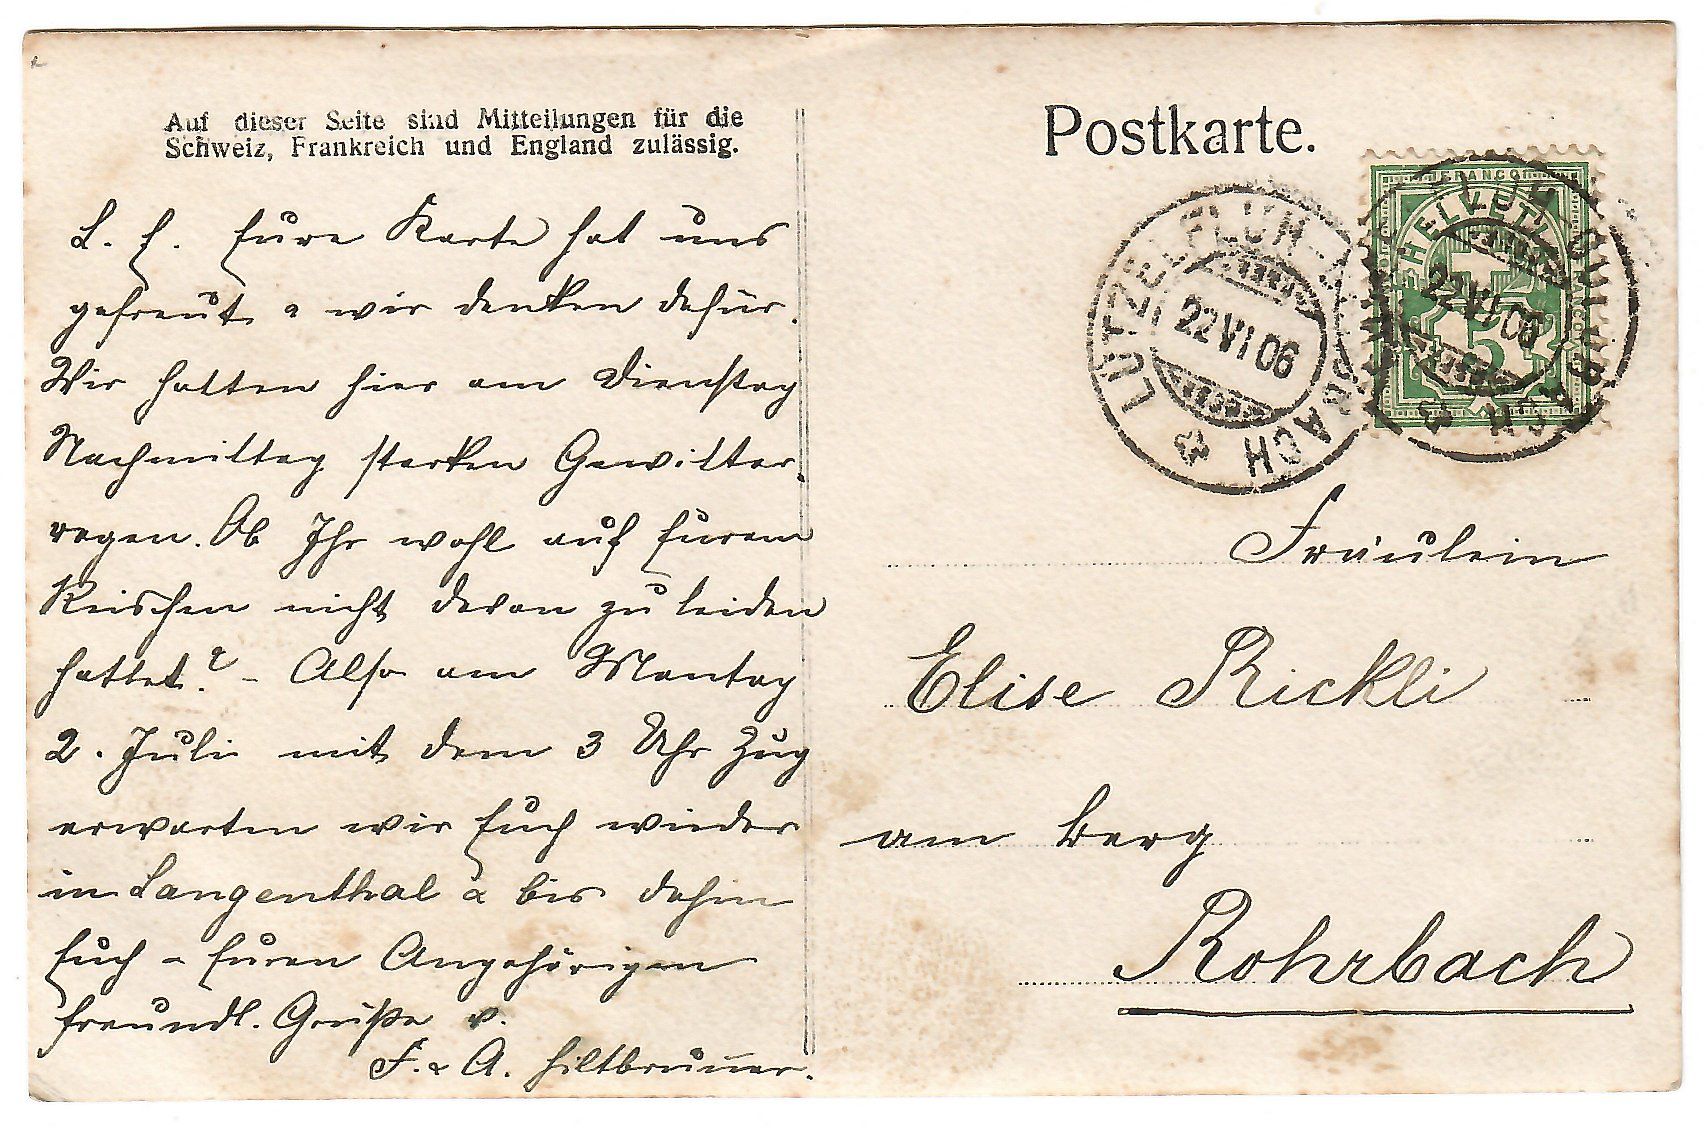 Auf dieser Seite sind Mitteilungen für die
Schweiz, Frankreich und England zulässig.
Postkarte.
L. E. Eure Karte hat uns
gefreut & wir danken dafür.
Wir hatten hier am Dienstag
Nachmittag starken Gewitter-
regen. Ob Ihr wohl auf Eurem
Reischen nicht davon zu leiden
hattet? – Also am Montag
2. Juli mit dem 3 Uhr Zug
erwarten wir Euch wieder
in Langenthal & bis dahin
Euch & Euren Angehörigen
freundl. Grüße v.
F. & A. Hiltbrunner.
FRANCO
HELVETIA
5
LÜTZELFLÜH-GOLDBACH
22 VI 06
LÜTZELFLÜH-GOLDBACH
22 VI 06
Fräulein
Elise Rickli
am Berg
Rohrbach